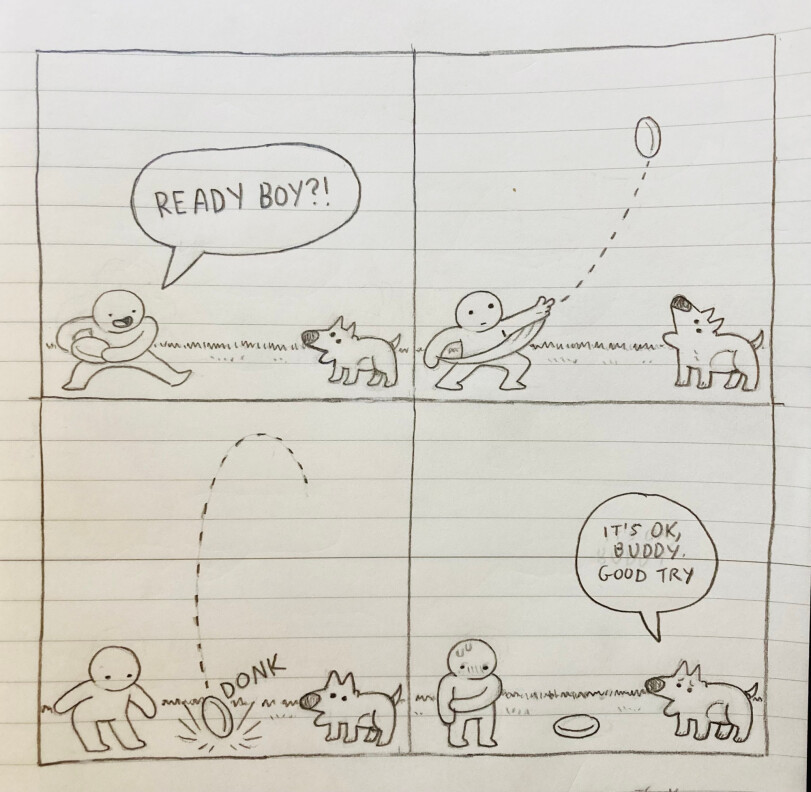 READY BOY?!
DONK
IT'S OK,
BUDDY.
GOOD TRY